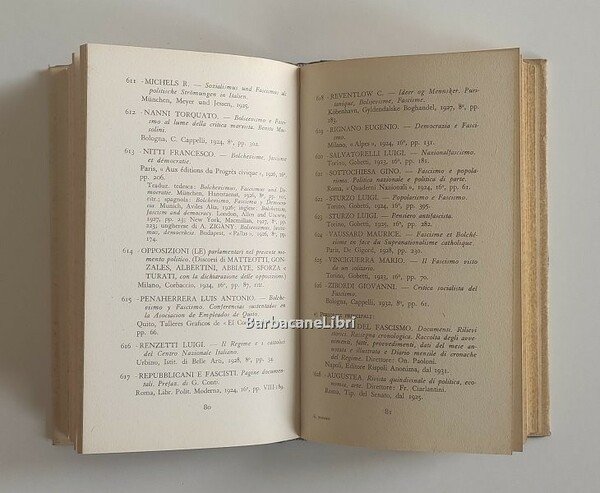 611 - MICHELS R. — Sozialismus und Fascismus als
politische Strömungen in Italien.
München, Meyer und Jessen, 1925.
612 - NANNI TORQUATO. — Bolscevismo e Fasci-
smo al lume della critica marxista. Benito Mus-
solini.
Bologna, C. Cappelli, 1924, 8º, pp. 302.
613 - NITTI FRANCESCO. — Bolchevisme, fascisme
et démocratie.
Paris, « Aux éditions du Progrès civique », 1926, 16º,
pp. 206.
Traduz. tedesca: Bolschewismus, Fascismus und De-
mocratie. München,
spagnola: Bolchevismo, Fascismo y Demo-
cracia Madrid, inglese: Bolshevism,
fascism and democracy. London, Allen and Unwin,
1927, pp. 223; New York, Macmillan, 1927, pp.
223; ungherese di A. ZIGANY:
Budapest, « Pallas », 1926, 8º, pp.
174.
614 - OPPOSIZIONI (LE) parlamentari nel presente mo-
mento politico. (Discorsi di MATTEOTTI, GON-
ZALES, ALBERTINI, ABBIATE, SFORZA e
TURATI, con la dichiarazione delle opposizioni)
Milano, Corbaccio, 1924, 16º, p. 87,
615 - PENAHERRERA LUIS ANTONIO. — Bolche-
vismo y Fascismo. Conferencias sustentadas en
la Asociacion de Empleados de Quito.
Quito, Talleres Graficos de « El Co
pp. 66.
616 - RENZETTI LUIGI. — Il Regime e i cattolici
del Centro Nazionale Italiano.
Urbino, Istit. di Belle Arti, 1928, 8º, pp. 32
617 - REPUBBLICANI E FASCISTI. Pagine documen-
tali. Prefaz. di G. Conti.
Roma, Libr. Polit. Moderna, 1924, 16º, pp. VIII-189.
80
618 - REVENTLOW C. — Ideer og Mennesker. Puri-
tanisme, Bolsevisme, Fascisme.
København, Gyldendalske Boghandel, 1927, 8º, pp.
183.
619 - RIGNANO EUGENIO. — Democrazia e Fasci-
smo.
Milano, « Alpes », 1924, 16º, pp. 131.
620 - SALVATORELLI LUIGI. — Nazionalfascismo.
Torino, Gobetti, 1923, 16º, pp. 181.
621 - SOTTOCHIESA GINO. — Fascismo e popolari-
smo. Politica nazionale e politica di parte.
Roma, « Quaderni Nazionali », 1924, 16º, pp. 61.
622 - STURZO LUIGI. — Popolarismo e Fascismo.
Torino, Gobetti, 1924, 16º, pp. 395.
623 - STURZO LUIGI. — Pensiero antifascista.
Torino, Gobetti, 1925, 16º, pp.
624 - VAUSSARD MAURICE. — Fascisme et Bolché-
visme en face du Supranationalisme catholique.
Paris, De Gigord, 1928, pp.
625 - VINCIGUERRA MARIO. — Il Fascismo visto
da un solitario.
Torino, Gobetti, 1923, 16º, pp. 70.
626 - ZIBORDI GIOVANNI. — Critica socialista del
Fascismo.
Bologna, Cappelli, 1922, 8º, pp. 61.
DEL FASCISMO. Documenti. Rilievi
Rassegna cronologica. Raccolta degli avve-
nimenti, fatte, provvedimenti, dati del mese anno-
e illustrati e Diario mensile di cronache
del Regime. Direttore: On. Paoloni.
Napoli, Editore Rispoli Anonima, dal 1931.
628 - AUGUSTEA. Rivista quindicinale di politica, eco-
nomia, arte. Direttore: Fr. Ciarlantini.
Roma, Tip. del Senato, dal 1925.
81
BarbacaneLibri